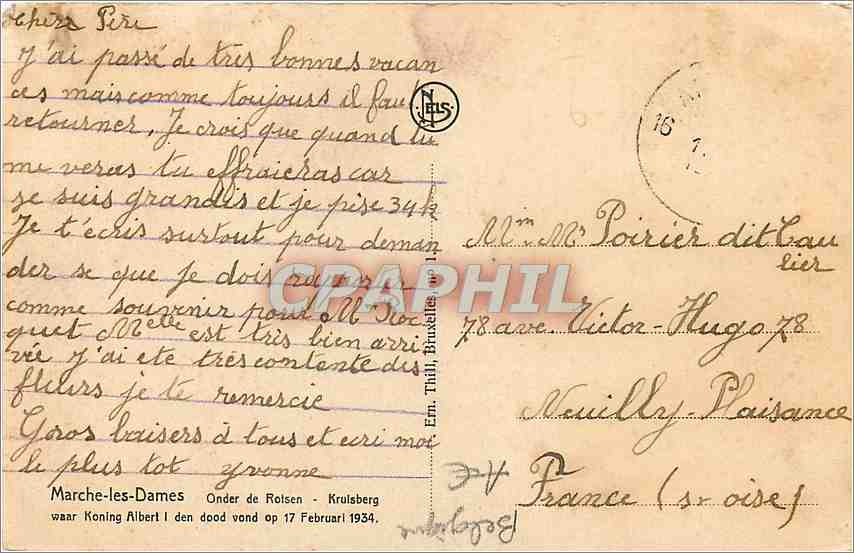 Chère Père
J'ai passé de tres bonnes vacan
ces mais comme toujours il faut
retourner. Je crois que quand tu
me veras tu effraieras car
je suis grandis et je pèse 34 k
Je t'écris surtout pour deman
der se que je dois
comme souvenir pour Mr Roc
quet Melle est très bien arri
vée J'ai été très contente des
fleurs je te remercie
Gros baisers à tous et ecri moi
le plus tot yvonne
Marche-les-Dames Onder de Rotsen - Kruisberg
waar Koning Albert I den dood vond op 17 Februari 1934.
NELS
Ern. Thill, Bruxelles, no 1.
CPAPHIL
16
Mm. Mr Poirier dit Cau
lier
78 ave. Victor-Hugo 78
Neuilly-Plaisance
France (s/ oise)
Belgique